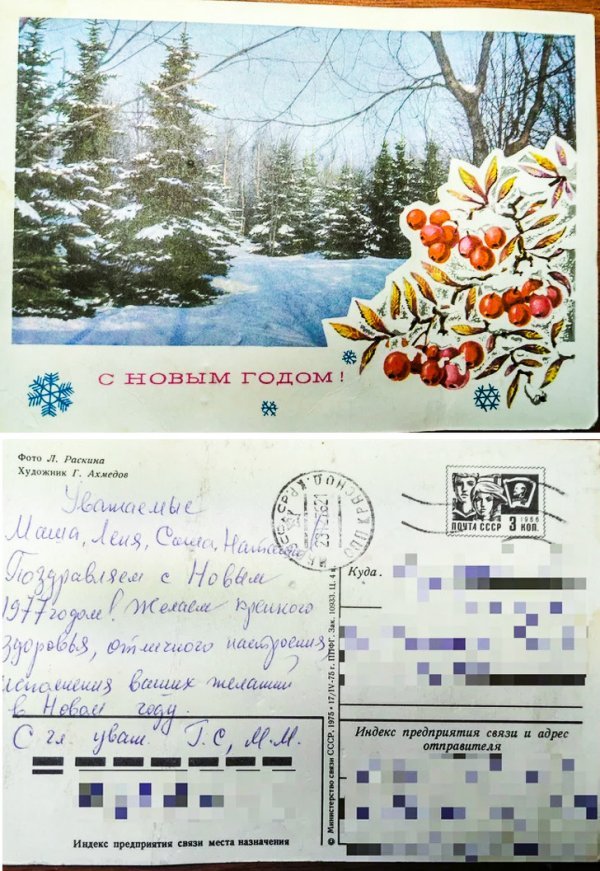 С НОВЫМ ГОДОМ!
Фото Л. Раскина
Художник Г. Ахмедов
Уважаемые
Маша, Леня, Саша, Наташа!
Поздравляем с Новым
1977 годом! Желаем крепкого
здоровья, отличного настроения,
исполнения ваших желаний
в Новом году.
С гл. уваж. Г.С, М.М.
Индекс предприятия связи места назначения
© Министерство связи СССР, 1975 • 17/IV-75 г. ППФГ. Зак. 10933. Ц. 4 к.
КРАСНОД
ПОЧТА СССР 3 КОП.
1966
Куда.
Индекс предприятия связи и адрес
отправителя